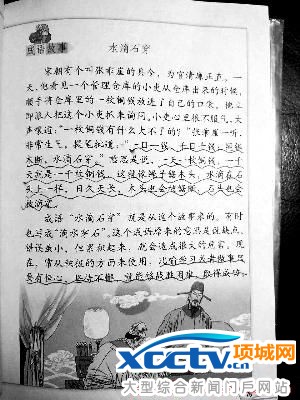 成语故事
水滴石穿
宋朝有个叫张乖崖的县令，为官清廉正直。一
天，他看见一个管理仓库的小吏从仓库出来的时候，
顺手将仓库里的一枚铜钱放进了自己的口袋。他立
即派人把这个小吏抓来审问。小吏心里很不服气，大
声嚷道：“一枚铜钱有什么大不了的？”张乖崖一听，
非常生气，提笔批道：“一日一钱，千日千钱，绳锯
木断，水滴石穿。”意思是说，一天一枚铜钱，一千
天就是一千枚铜钱。这就像绳子锯木头，水滴在石
头上一样，日久天长，木头也会被锯断，石头也会
被滴穿。
成语“水滴石穿”就是从这个故事来的。有时
也写成“滴水穿石”。这个成语原来的意思是说缺点、
错误虽小，但累积起来，就会造成很大的危害。现
在，常从积极的方面来使用，比喻学习或者做事只
要有恒心，坚持不懈，就能够战胜困难，取得成功。
75
xcctv.cn项城网
大型综合新闻门户网站